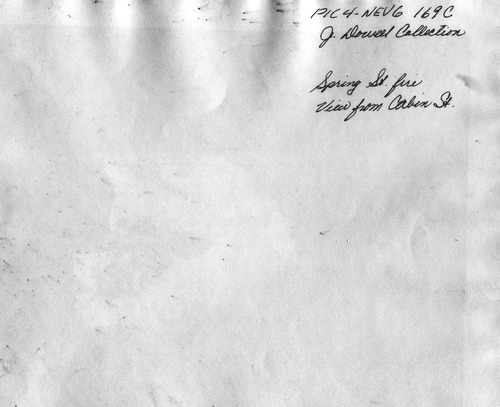 PIC 4-NEV6 169C
J. Dowell Collection
Spring St. fire
View from Cabin St.